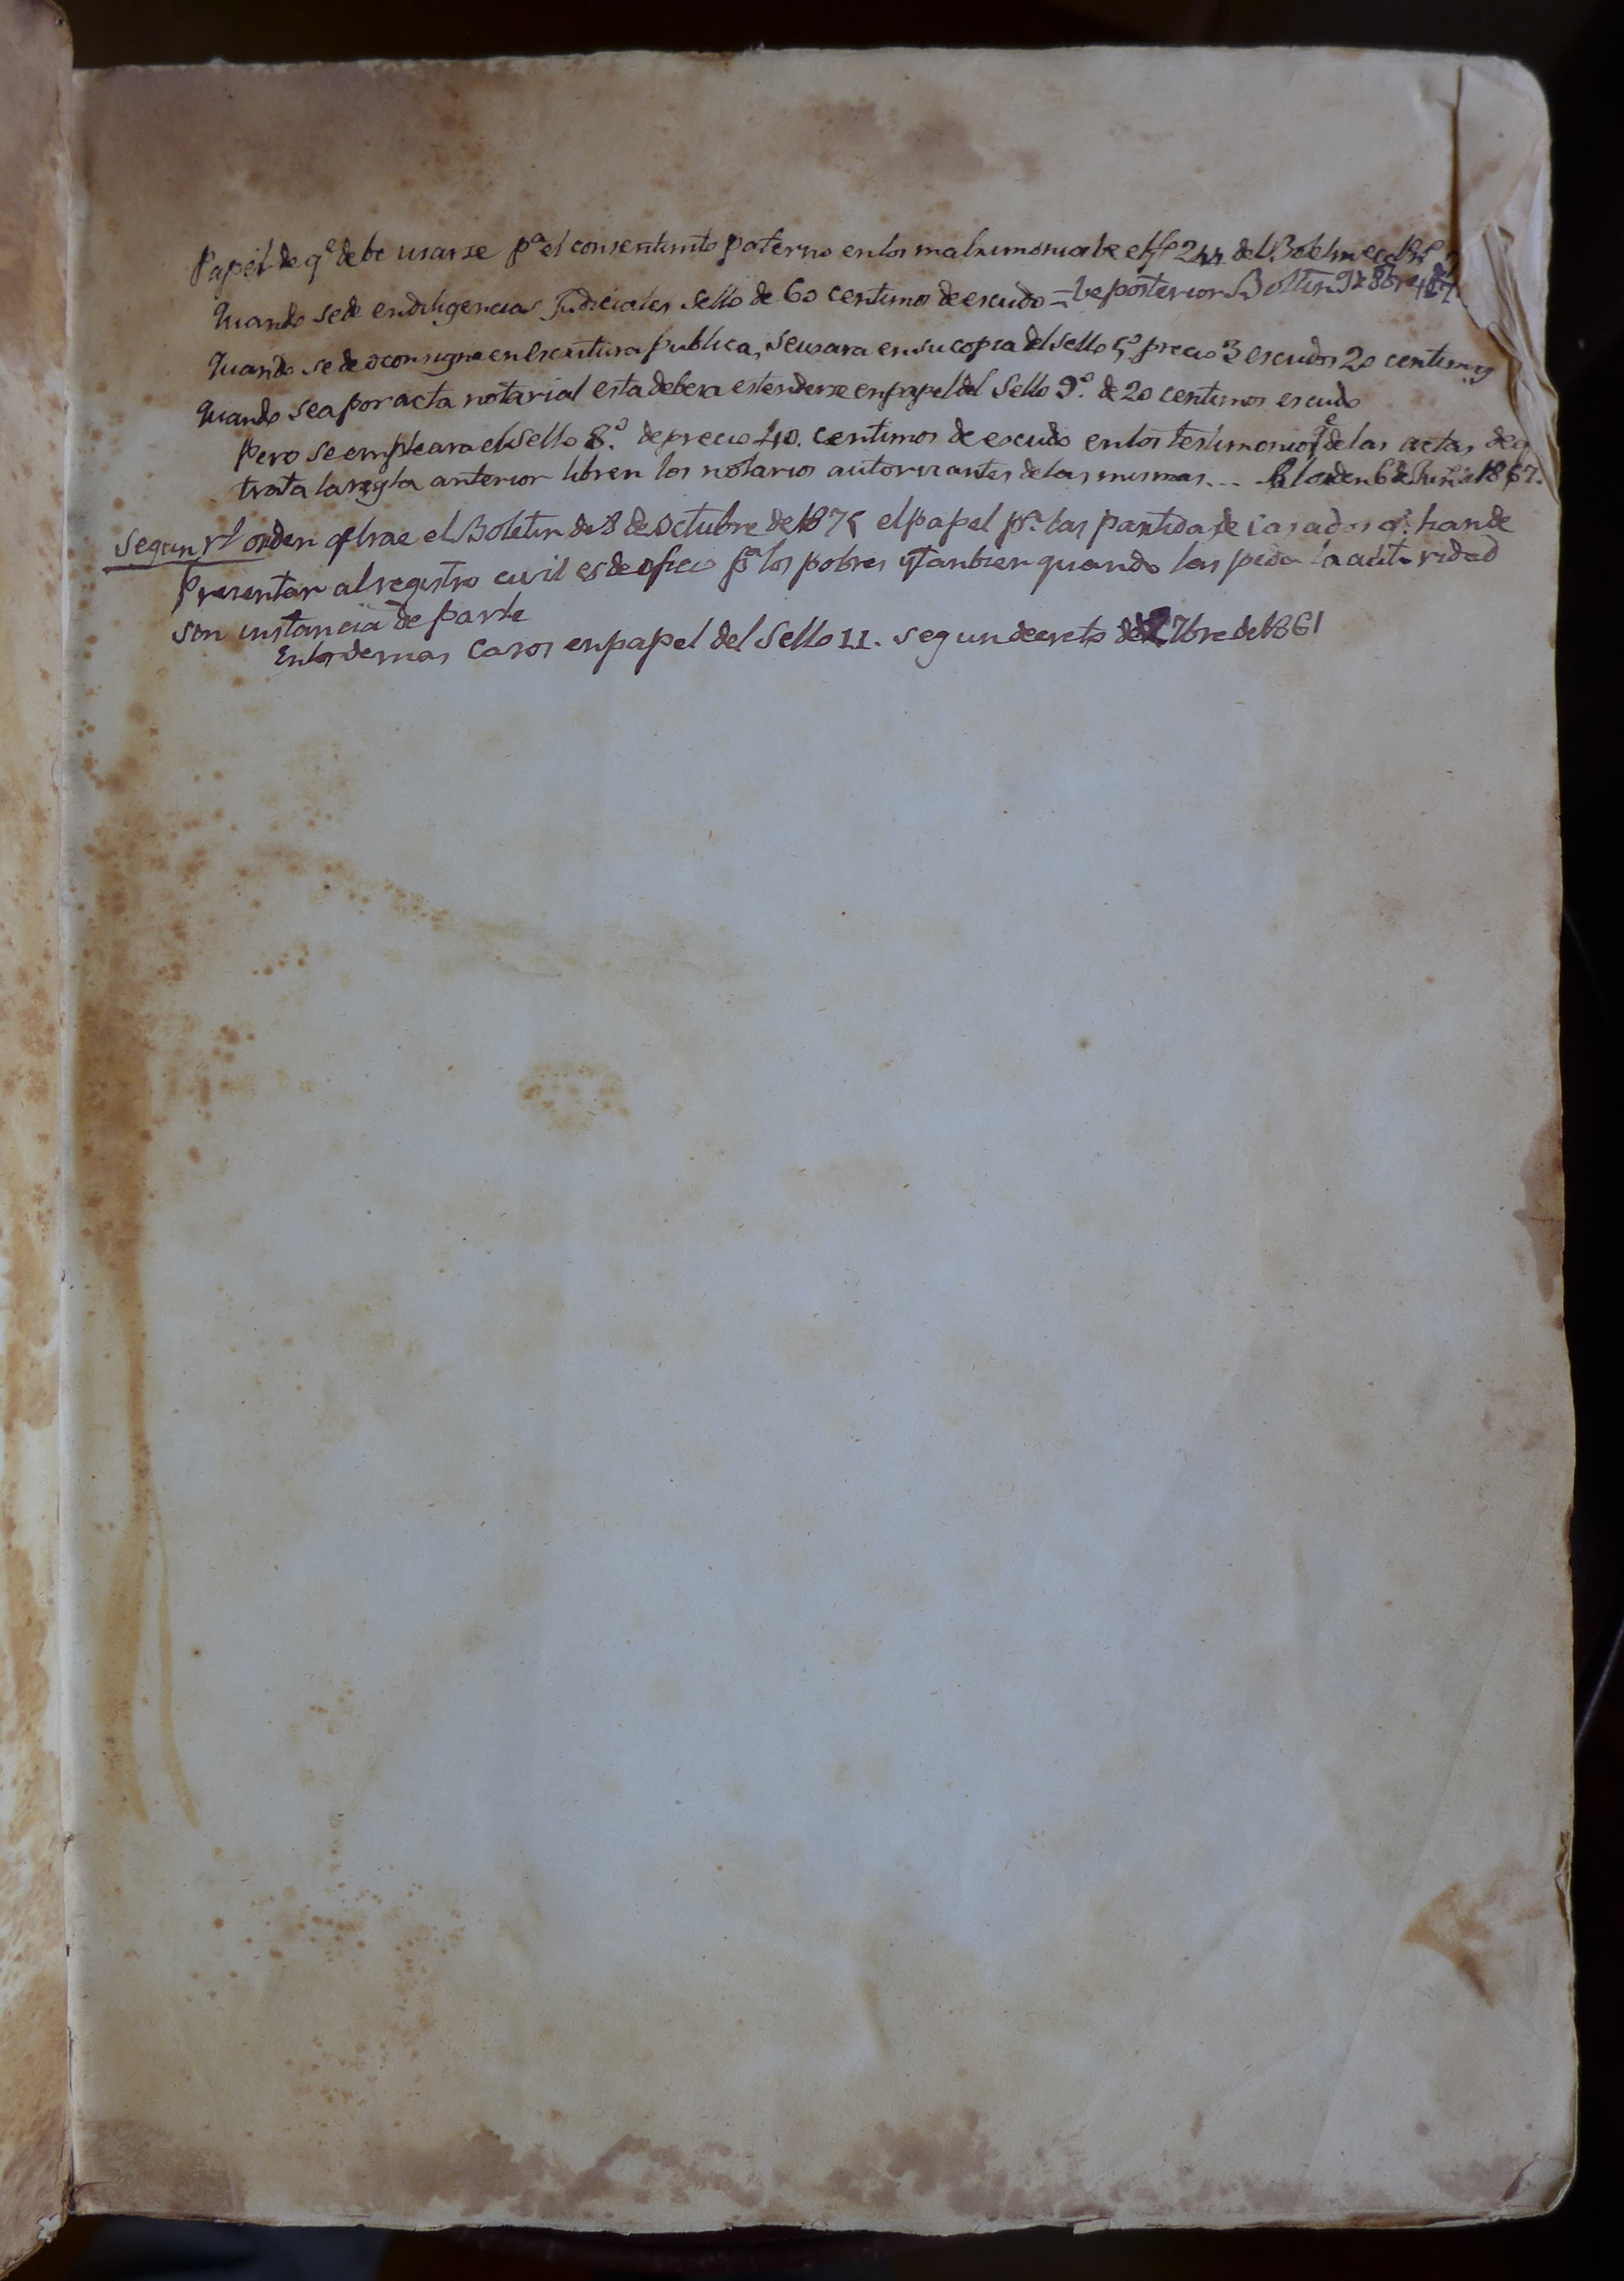 Papel de qᵉ debe usarse pᵃ el consentimto paterno en los matrimonios Ve el fº 244 del Boletin ecc
Quando se dé en diligencias Judiciales sello de 60 centimos de escudo = Ve posterior Boletin 9 de 8bre
Quando se de o consigna en Escritura publica, se usara en su copia del sello 5º precio 3 escudos 20 centimos
Quando sea por acta notarial esta debera estenderse en papel del Sello 9º. de 20 centimos escudo
Pero se empleara el sello 8.º de precio 40. centimos de escudo en los testimonios qᵉ de las actas de q
trata la regla anterior libren los notarios autorizantes de las mismas... Rl orden 6 de Junº de 1867.
Segun rˡ orden q trae el Boletin de 8 de Octubre de 1875 el papel pᵃ. las partidas de casados qᵉ. han de
Presentar al registro civil es de oficio pᵃ los pobres y tanbien quando las pida la autoridad
sin instancia de parte
En los demas casos en papel del Sello 11. segun decreto de 7bre de 1861